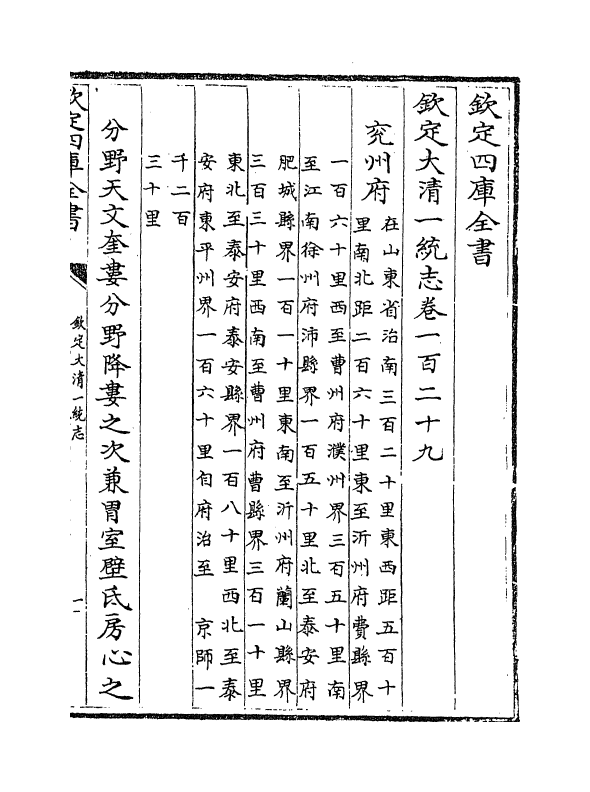 欽定四庫全書
欽定大清一統志卷一百二十九
兖州府
在山東省治南三百二十里東西距五百十
里南北距二百六十里東至沂州府費縣界
一百六十里西至曹州府濮州界三百五十里南
至江南徐州府沛縣界一百五十里北至泰安府
肥城縣界一百一十里東南至沂州府蘭山縣界
三百三十里西南至曹州府曹縣界三百一十里
東北至泰安府泰安縣界一百八十里西北至泰
安府東平州界一百六十里自府治至 京師一
千二百
三十里
分野天文奎婁分野降婁之次兼胃室壁氐房心之
欽定四庫全書
欽定大清一統志